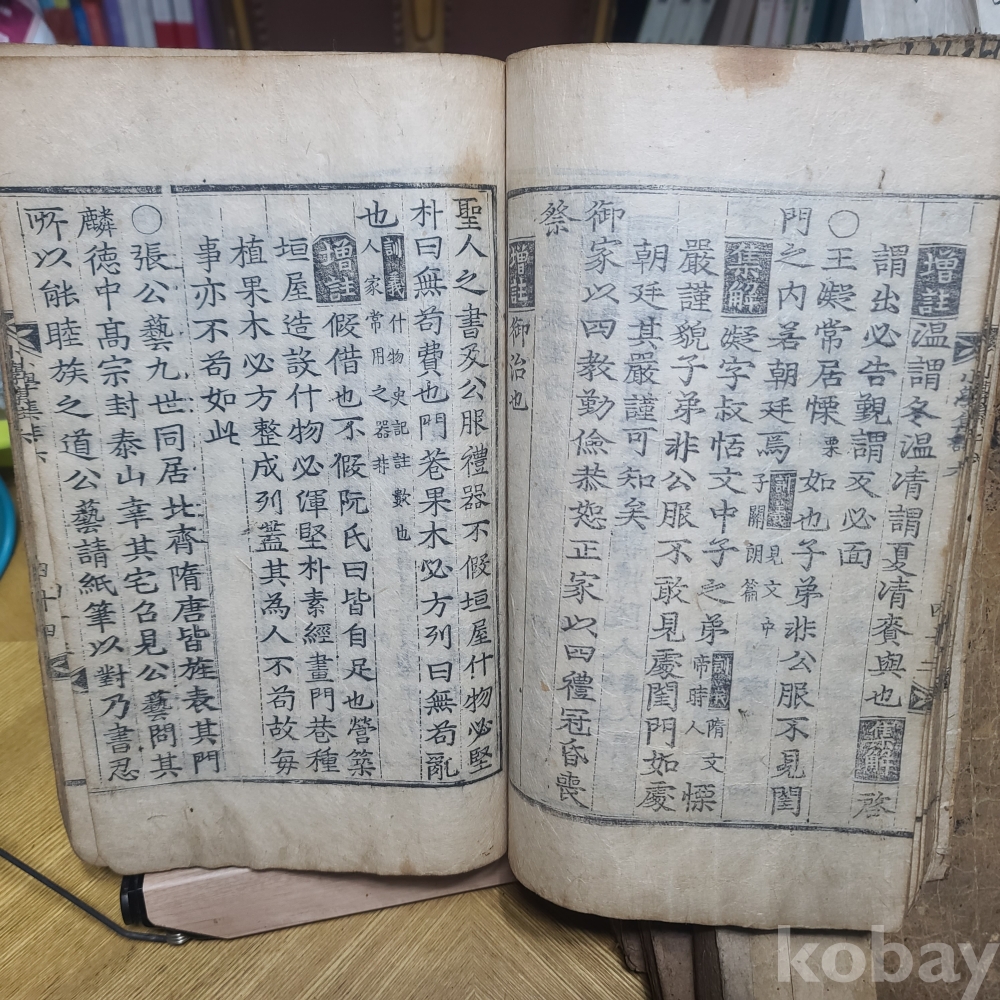 增註 温謂冬温凊謂夏凊賚與也 集解 啓
謂出必告覲謂反必面
○王凝常居慄 栗 如也子弟非公服不見閨
門之内若朝廷焉 訓義 見文中子關朗篇
集解 凝字叔恬文中子之弟 訓義 隋文帝時人 慄
嚴謹貌子弟非公服不敢見處閨門如處
朝廷其嚴謹可知矣
御家以四教勤儉恭恕正家以四禮冠昏喪
祭
增註 御治也
聖人之書及公服禮器不假垣屋什物必堅
朴曰無苟費也門巷果木必方列曰無苟亂
也 訓義 什物史記註數也人家常用之器非
增註 假借也不假阮氏曰皆自足也營築
垣屋造設什物必渾堅朴素經畫門巷種
植果木必方整成列蓋其為人不苟故每
事亦不苟如此
○張公藝九世同居北齊隋唐皆旌表其門
麟德中高宗封泰山幸其宅召見公藝問其
所以能睦族之道公藝請紙筆以對乃書忍
四十四
kobay